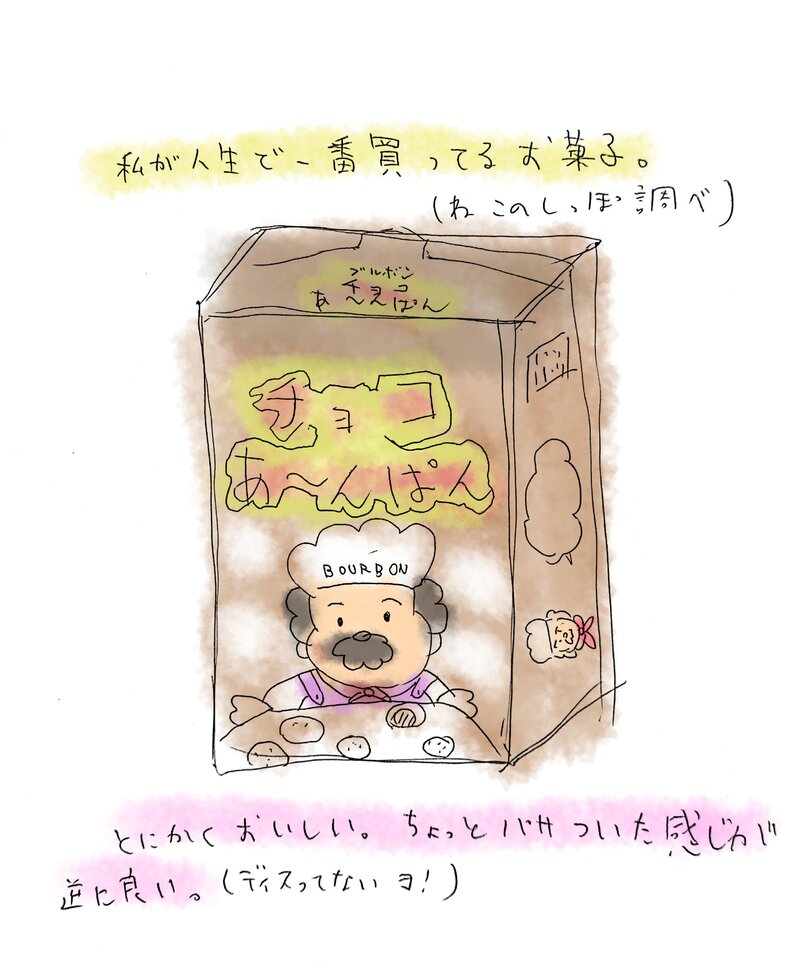 私が人生で一番買ってるお菓子。
(ねこのしっぽ調べ)
ブルボン
チョコ
あ〜んぱん
チョコ
あ〜んぱん
BOURBON
とにかくおいしい。ちょっとバサついた感じが
逆に良い。(ディスってないヨ!)